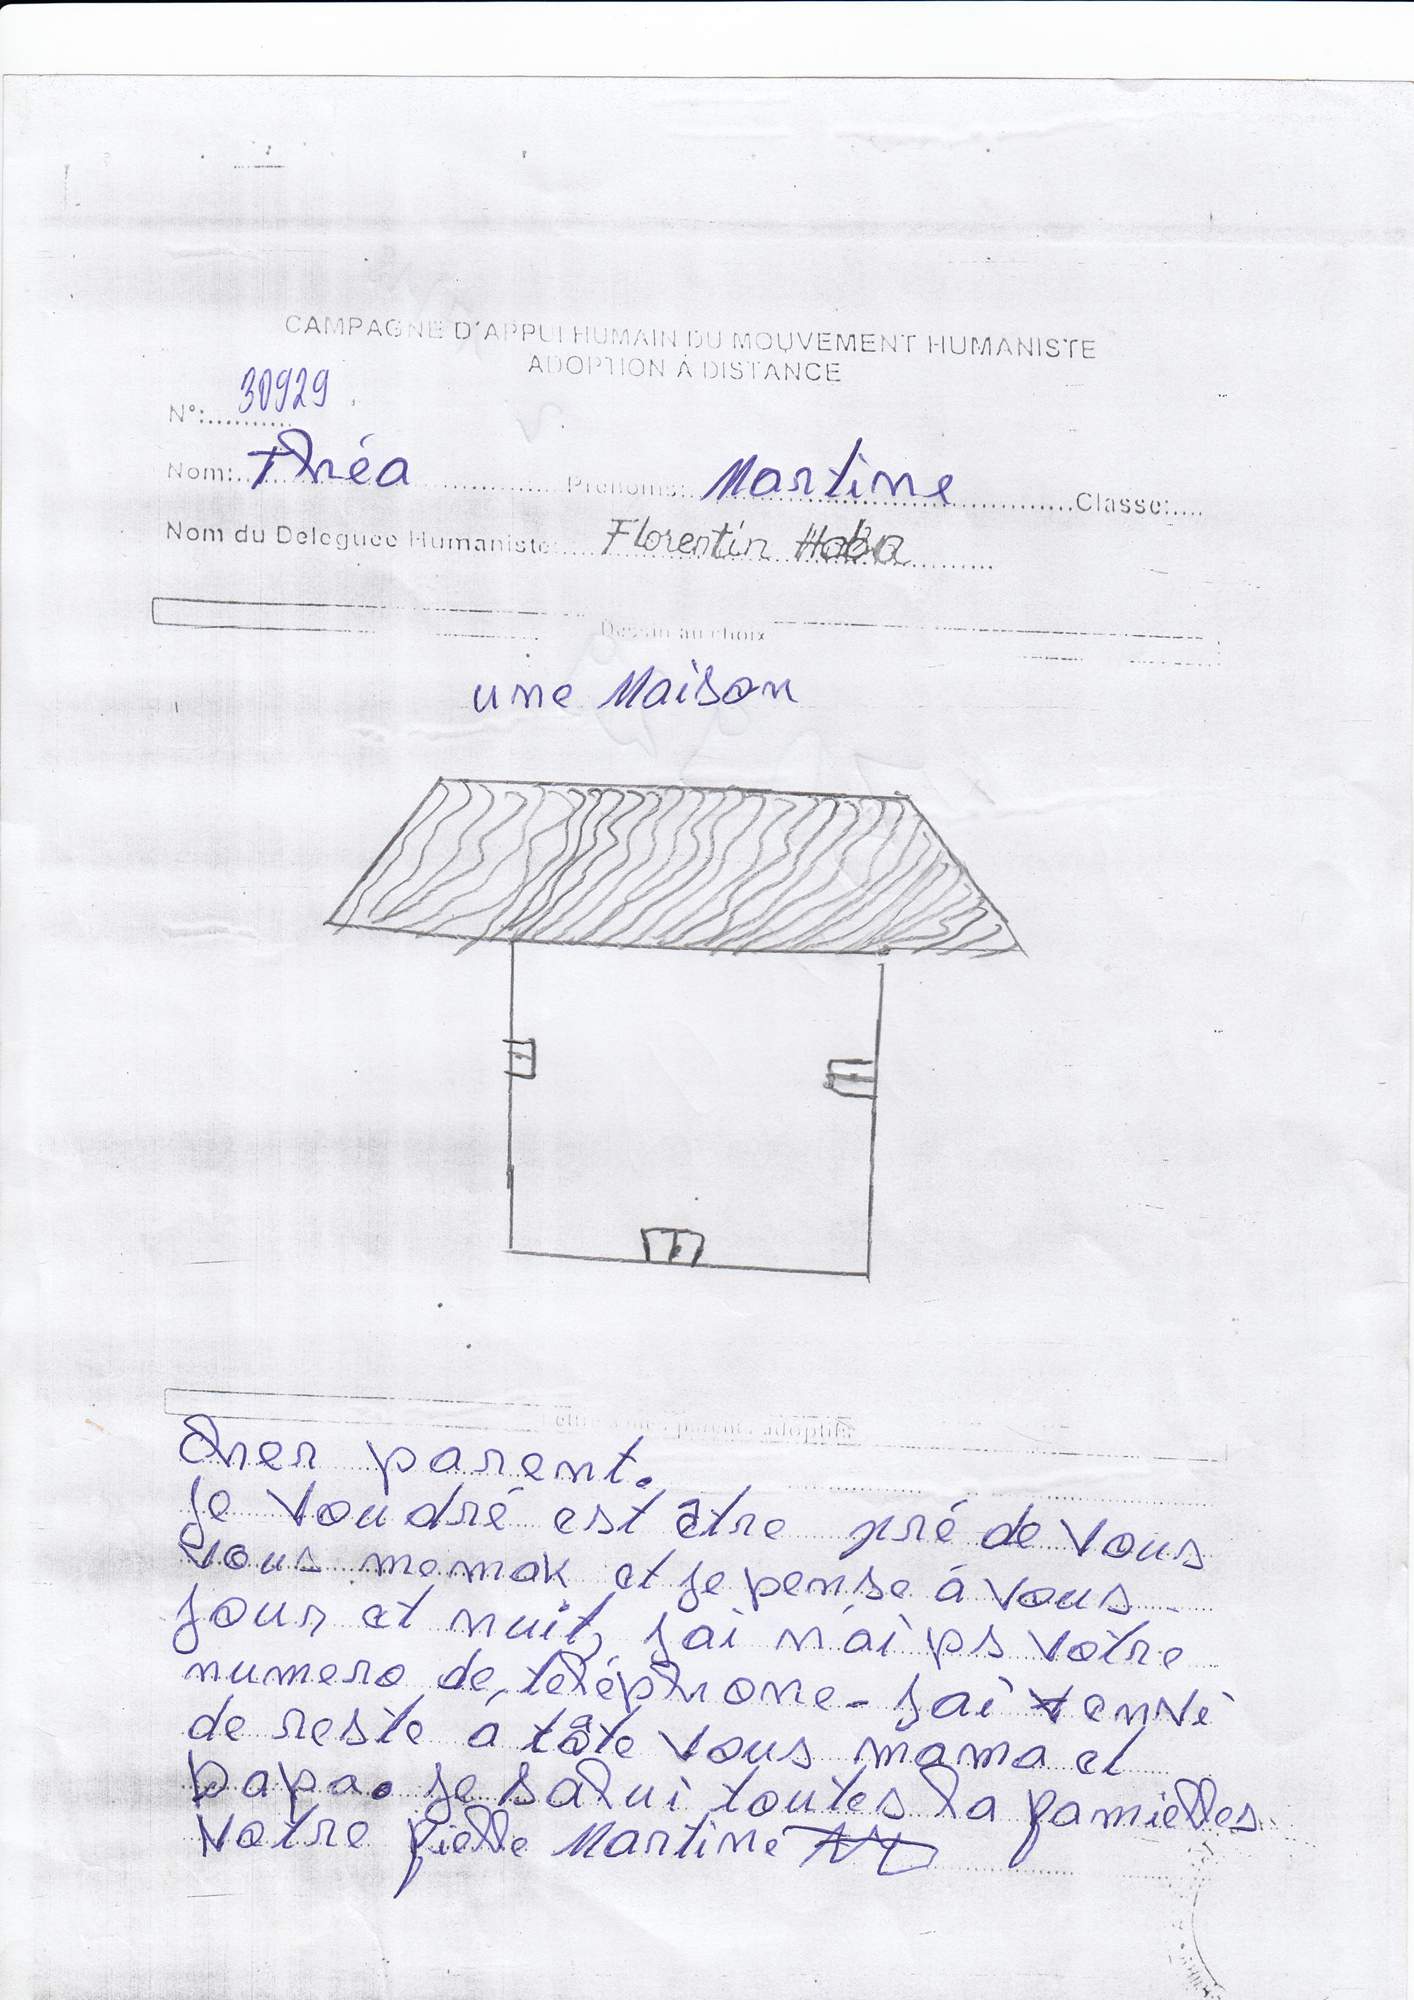 CAMPAGNE D'APPUI HUMAIN DU MOUVEMENT HUMANISTE
ADOPTION À DISTANCE
N°:.......... 30929
Nom: Théa Prénoms: Martine Classe:....
Nom du Deleguee Humaniste: Florentin Haba
Dessin au choix
une Maison
Lettre à mes parents adoptifs
Cher parent.
Je voudré est être pré de vous
vous memak et je pense á vous
jour et nuit, j ai n'ai ps votre
numero de, téléphone - j ai envi
de reste a tâte vous mama et
papa. je salui toutes la famielles
Votre fielle Martine